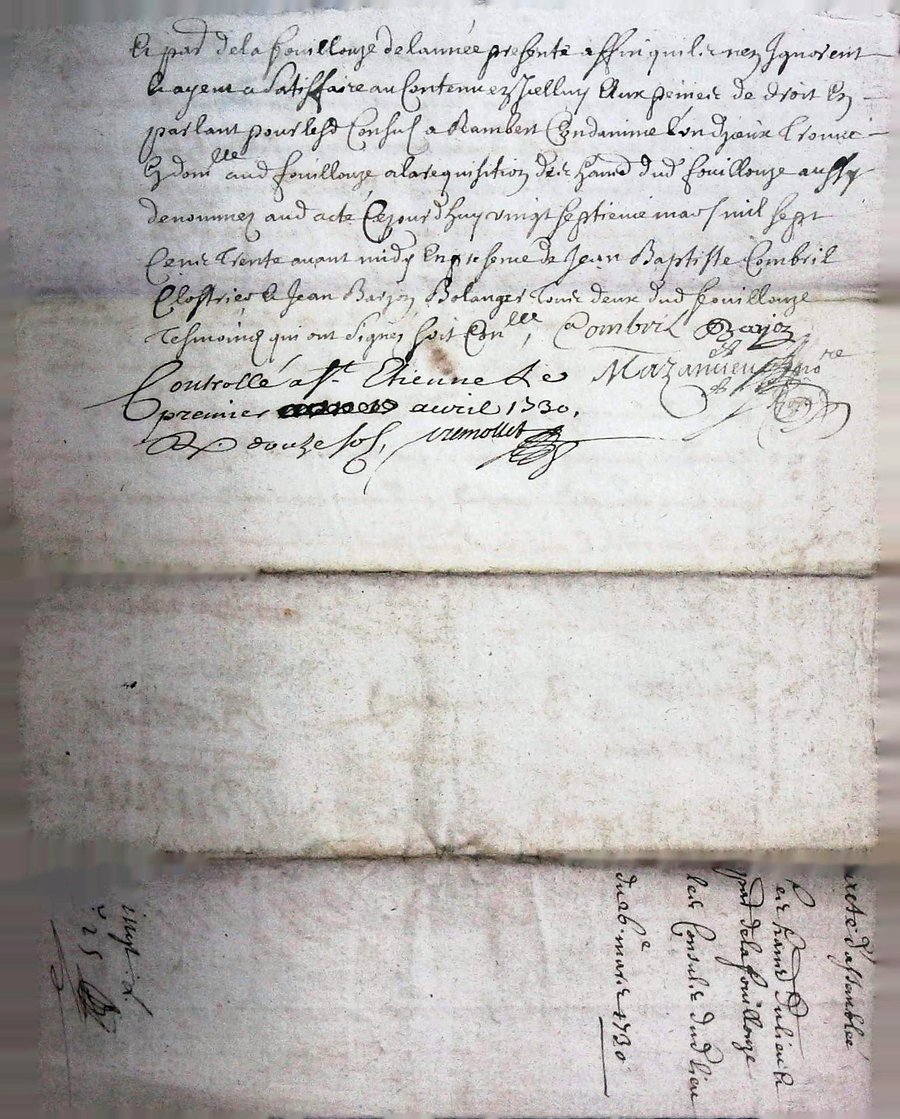 Et par de la fouillouze de lannée presente affin quils nen Ignorent
Et ayent a satisfaire au Contenu en Icelluy Aux peines de droit En
parlant pour lesd Consuls a Rambert Lun dyceux trouvé
En domlle aud fouillouze a la requisition des hants dud fouillouze aussy
denommez aud acte Cejourdhuy vingt septieme mars mil sept
Cens trente avant midy En presence de Jean Baptiste Combril
Clostrier Et Jean Barjon Bolanger tous deux dud fouillouze
Tesmoins qui ont signés soit Conlle, Combril Barjon
Mazancieu nore
Controllé a St Etienne Le
premier avril 1730,
Rx douze sols, vremollet
acte d'assemblée
des hants du lieu Et
par de la fouillouze
les Consuls dud lieu
du 26e mars 1730
n 25